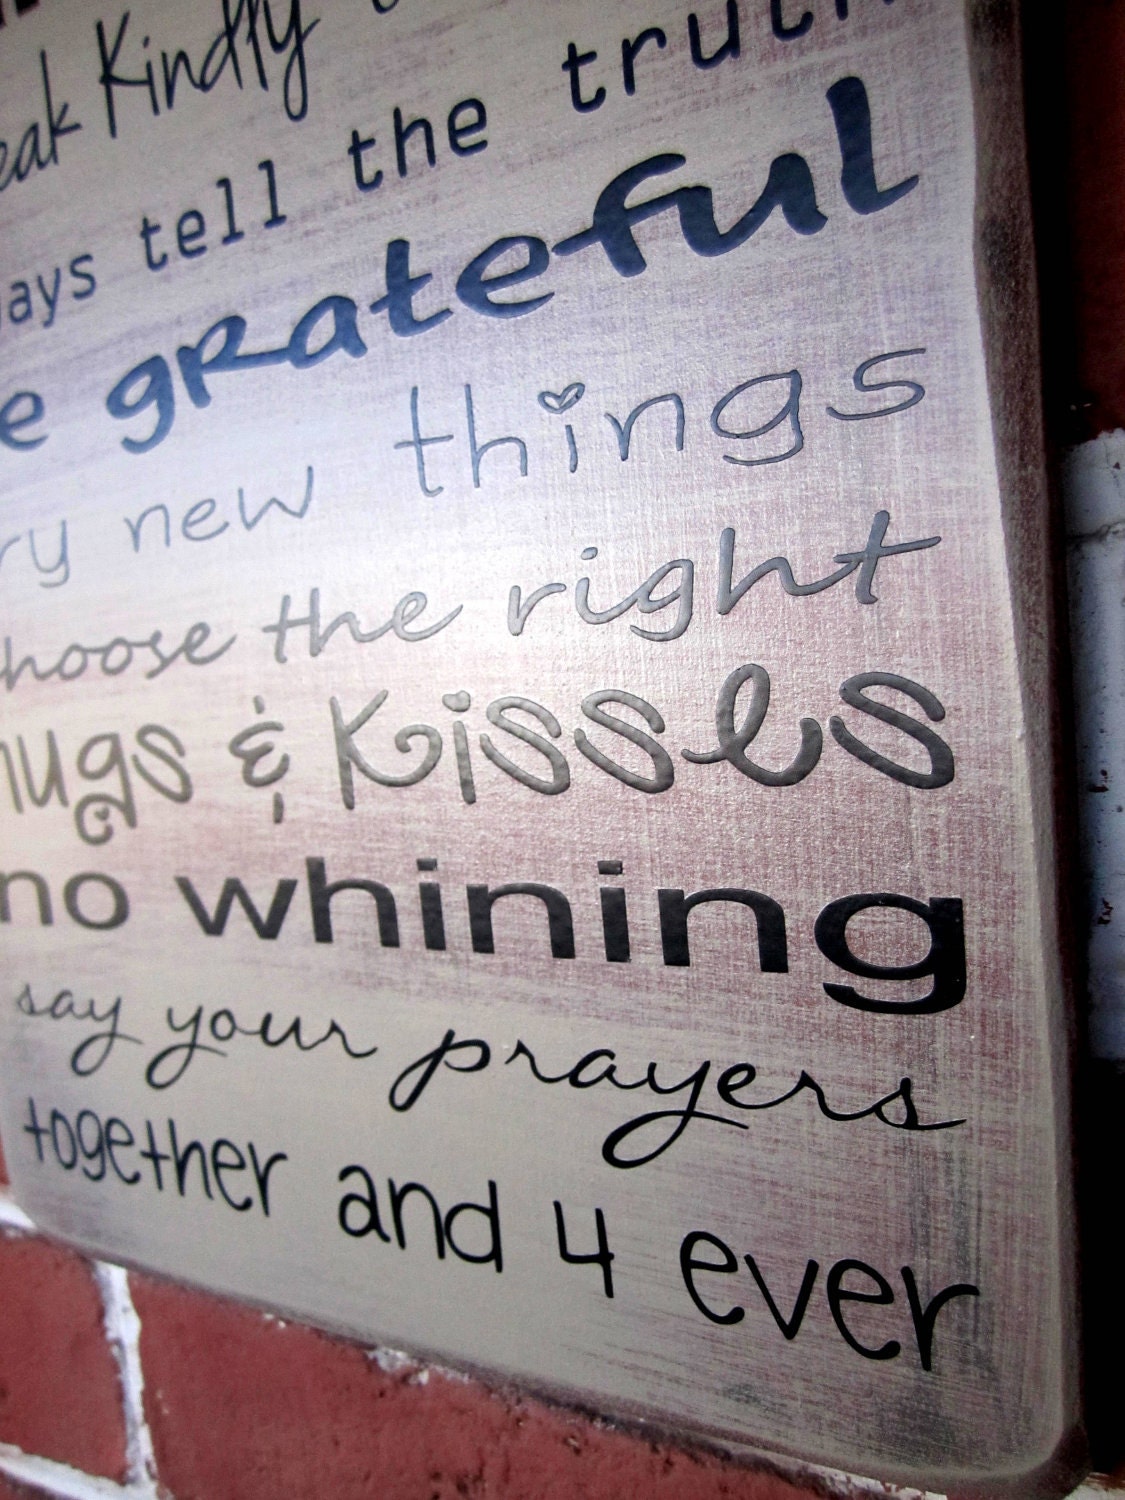 Kindly
tell the truth
grateful
new things
the right
& Kisses
no whining
say your prayers
together and 4 ever